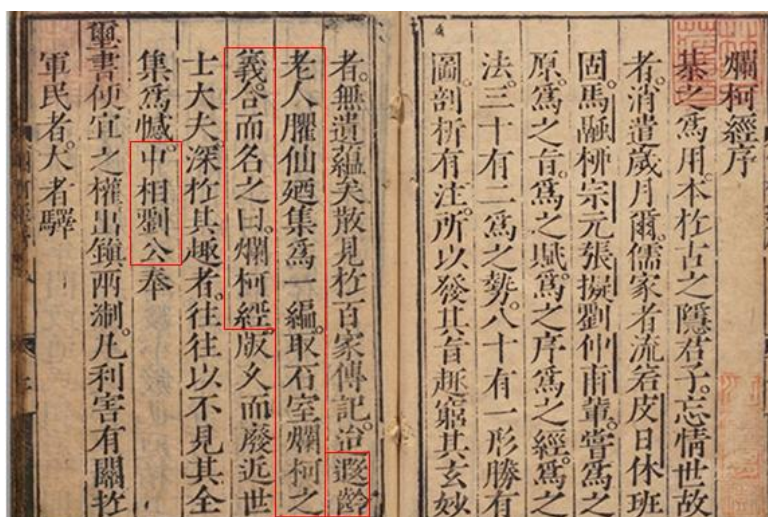 爛柯經序
棊之爲用本於古之隱君子忘情世故
者消遣歲月爾儒家者流若皮日休班
固馬融栁宗元張擬劉仲甫軰嘗爲之
原爲之旨爲之賦爲之序爲之經爲之
法三十有二爲之勢八十有一形勝有
圖剖析有注所以發其旨趣窮其玄妙
者無遺蘊矣散見於百家傳記洎遐齡
老人臞仙廼集爲一編取石室爛柯之
義合而名之曰爛柯經版乆而廢近世
士大夫深於其趣者往往以不見其全
集爲憾中相劉公奉
璽書便宜之權出鎭兩淛凢利害有關於
軍民者大者驛